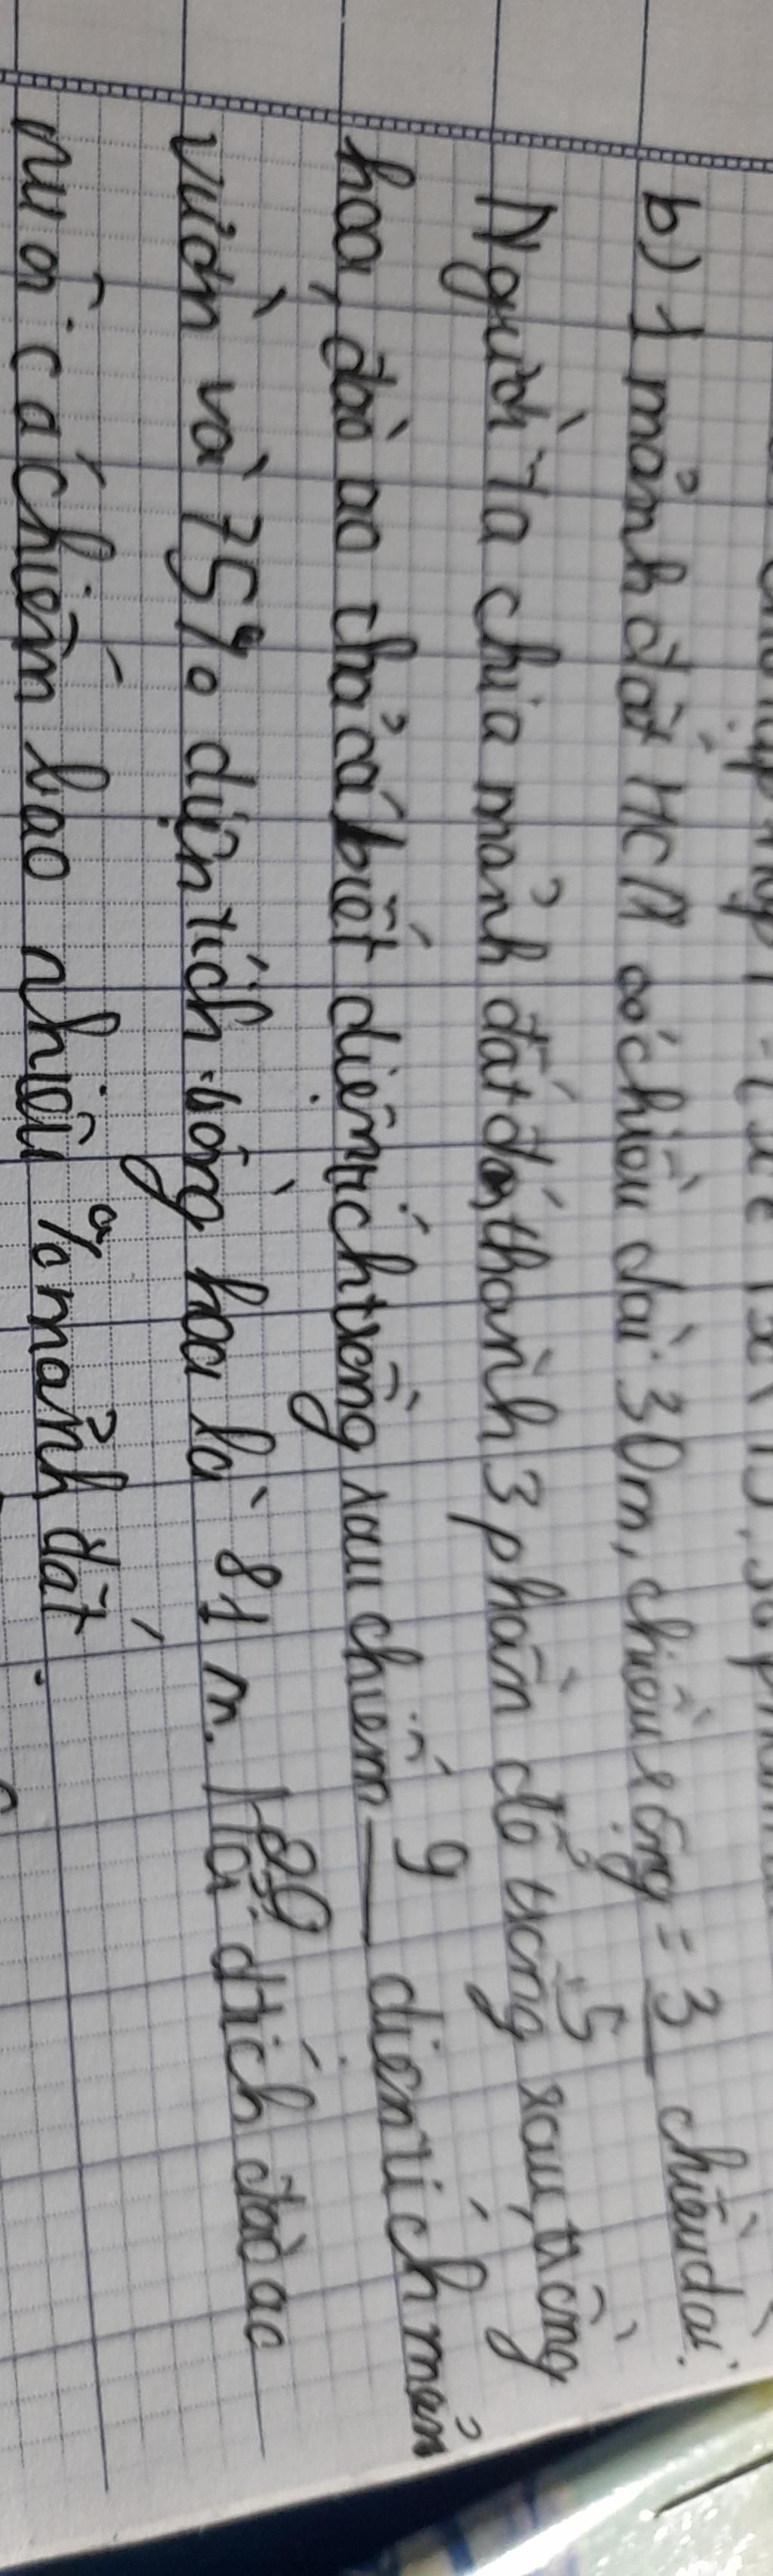 b) 1 mảnh đất HCN có chiều dài 30m, chiều rộng = 3 chiều dài.
5
Người ta chia mảnh đất đó thành 3 phần để trồng rau, trồng
hoa, đào ao thả cá biết diện tích trồng rau chiếm 9 diện tích mản
20
vườn và 75% diện tích trồng hoa là 81 m. Hỏi dtích đào ao
nuôi cá chiếm bao nhiêu % mảnh đất